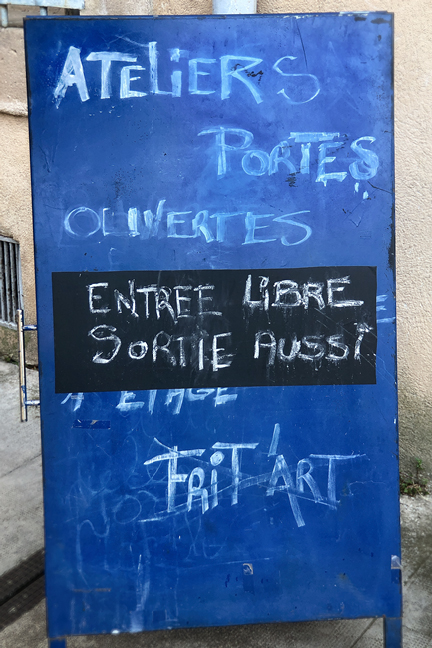 ATELIERS
PORTES
OUVERTES
ENTREE LIBRE
SORTIE AUSSI
A L'ETAGE
FRIT'ART